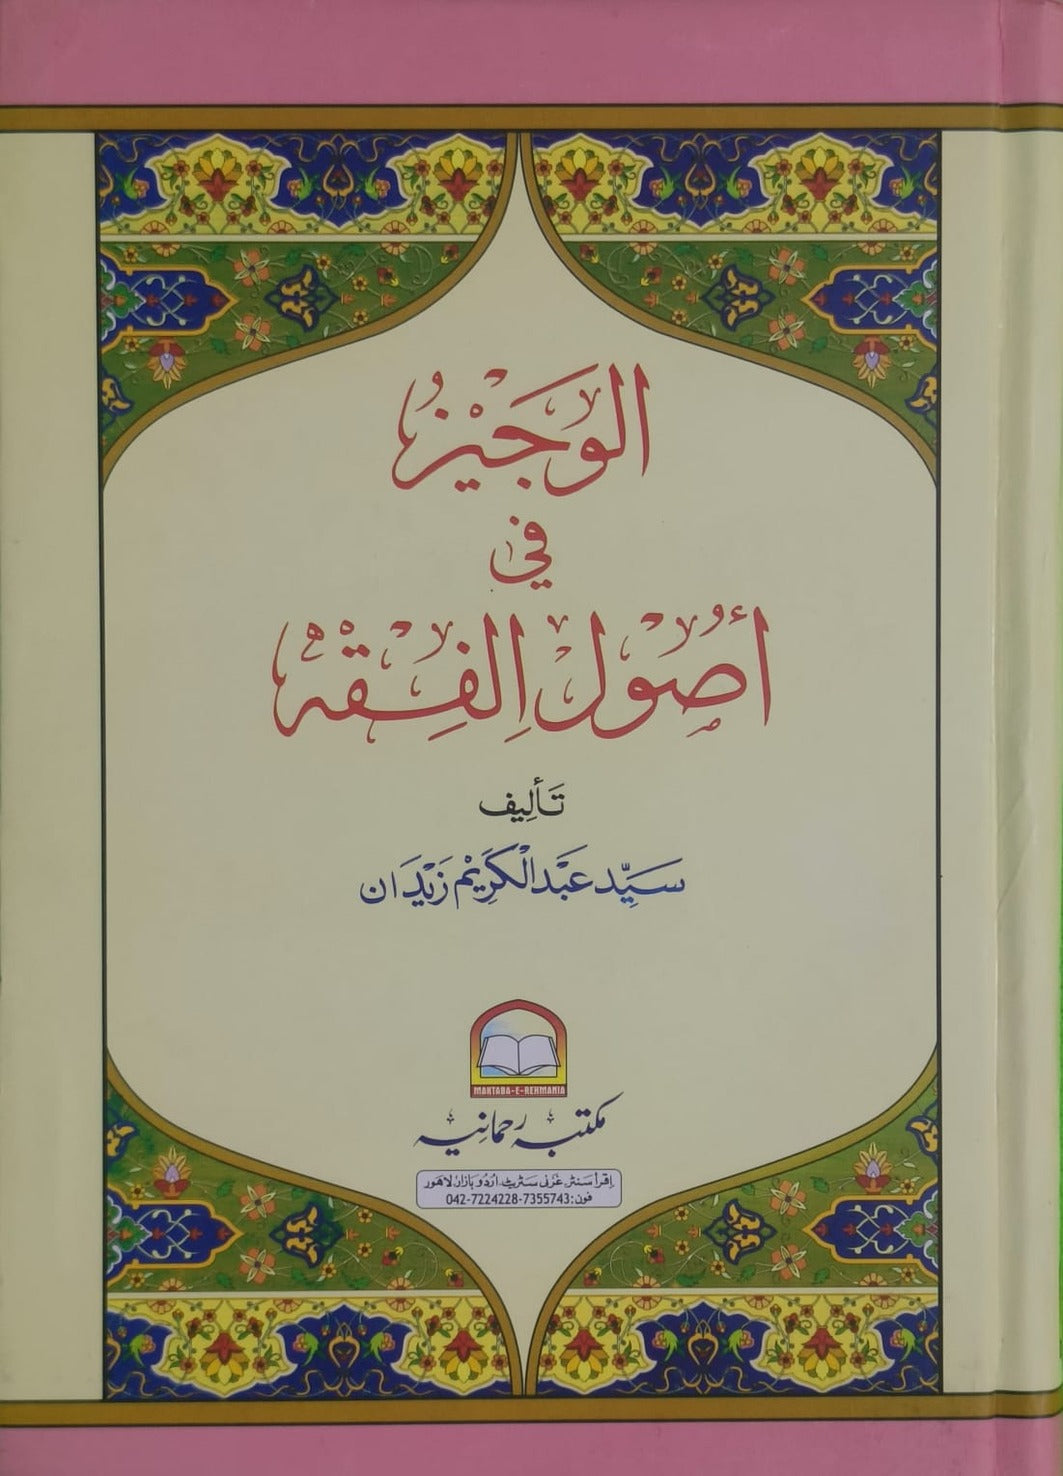 الوَجَيْزُ
في
أُصُولِ الفِقْهِ
تَألِيف
سَيِّد عَبْدالْكَرِيْم زَيْدَان
MAKTABA-E-REHMANIA
مكتبہ رحمانیہ
اِقرأ سنٹر، غزنی سٹریٹ، اُردو بازار لاهور
فون: 042-7224228-7355743